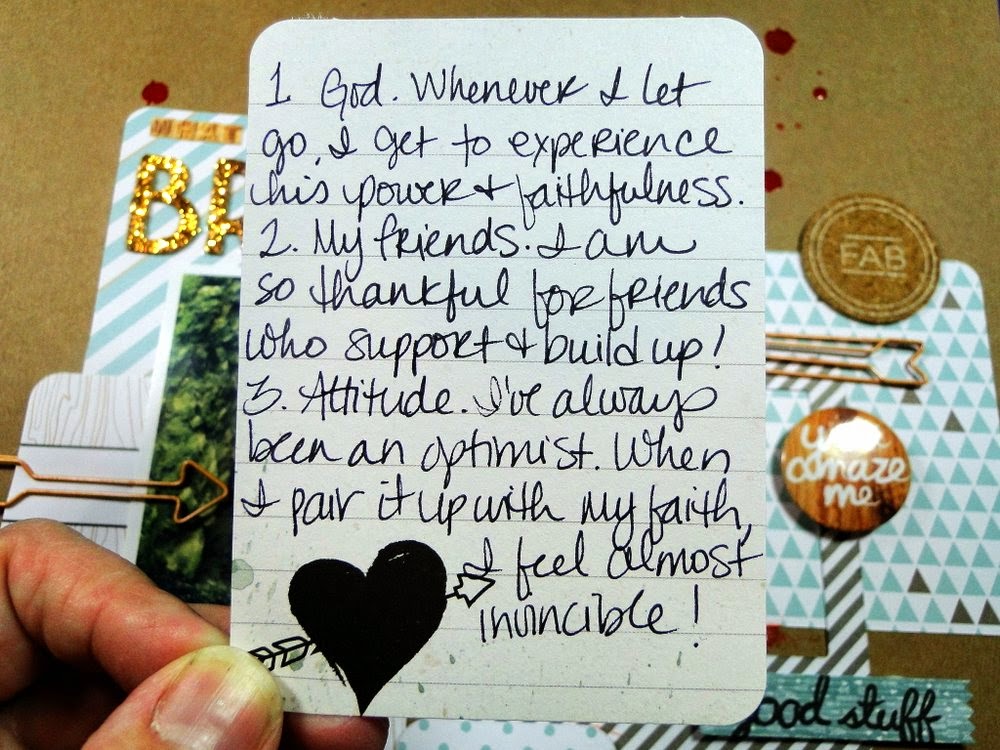 1. God. Whenever I let
go, I get to experience
his power & faithfulness.
2. My friends. I am
so thankful for friends
who support & build up!
3. Attitude. I've always
been an optimist. When
I pair it up with my faith,
I feel almost
invincible!
WHAT
BR
FAB
you
amaze
me
good stuff